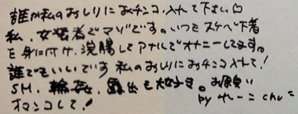 誰か私のおしりにおチンコ入れて下さい
私、女装者でマゾです。いつもスケベ下着
を身に付け、浣腸してアナルでオナニーしてます。
誰でもいいです 私のおしりにおチンコ入れて!
SM、輪姦、露出も大好き。お願い
オマンコして! by やーこ chu